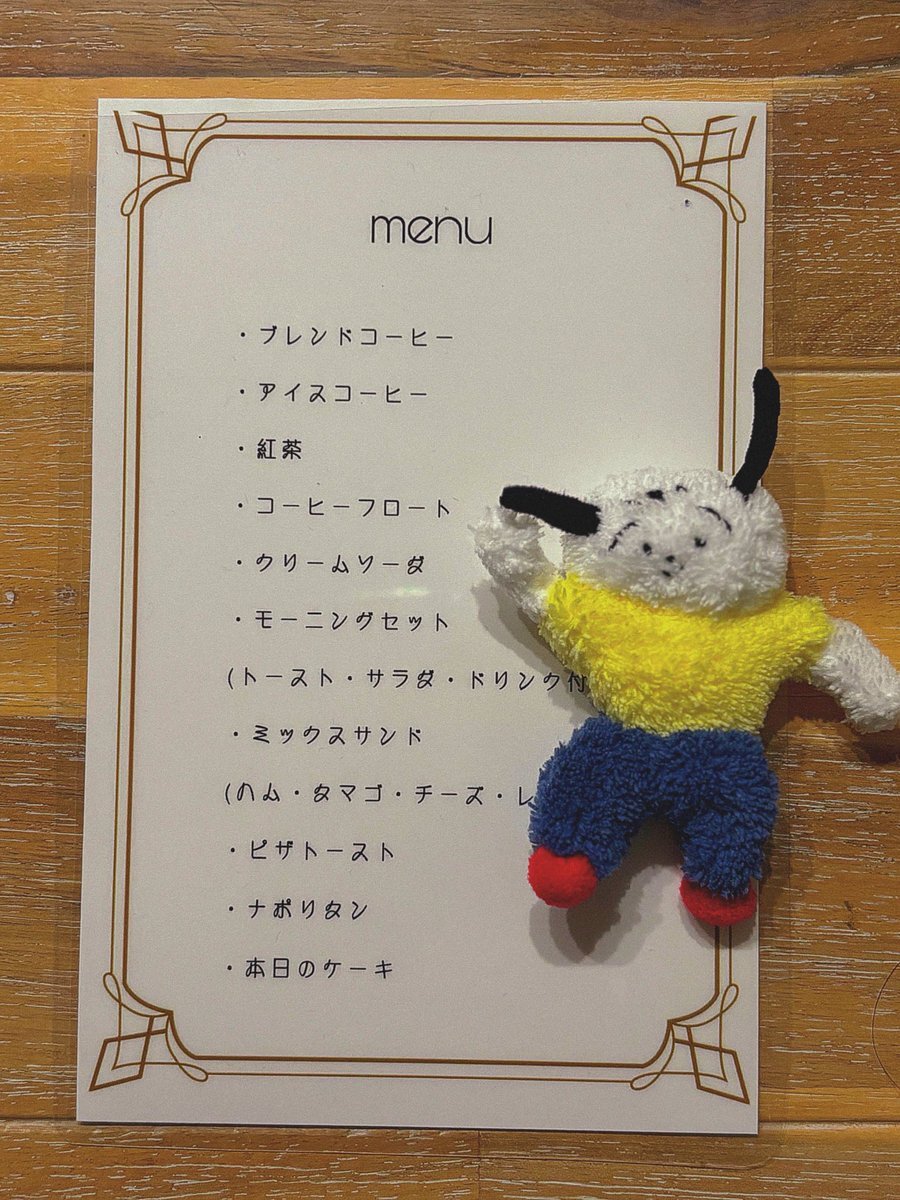 menu
・ブレンドコーヒー
・アイスコーヒー
・紅茶
・コーヒーフロート
・クリームソーダ
・モーニングセット
(トースト・サラダ・ドリンク付
・ミックスサンド
(ハム・タマゴ・チーズ・レ
・ピザトースト
・ナポリタン
・本日のケーキ